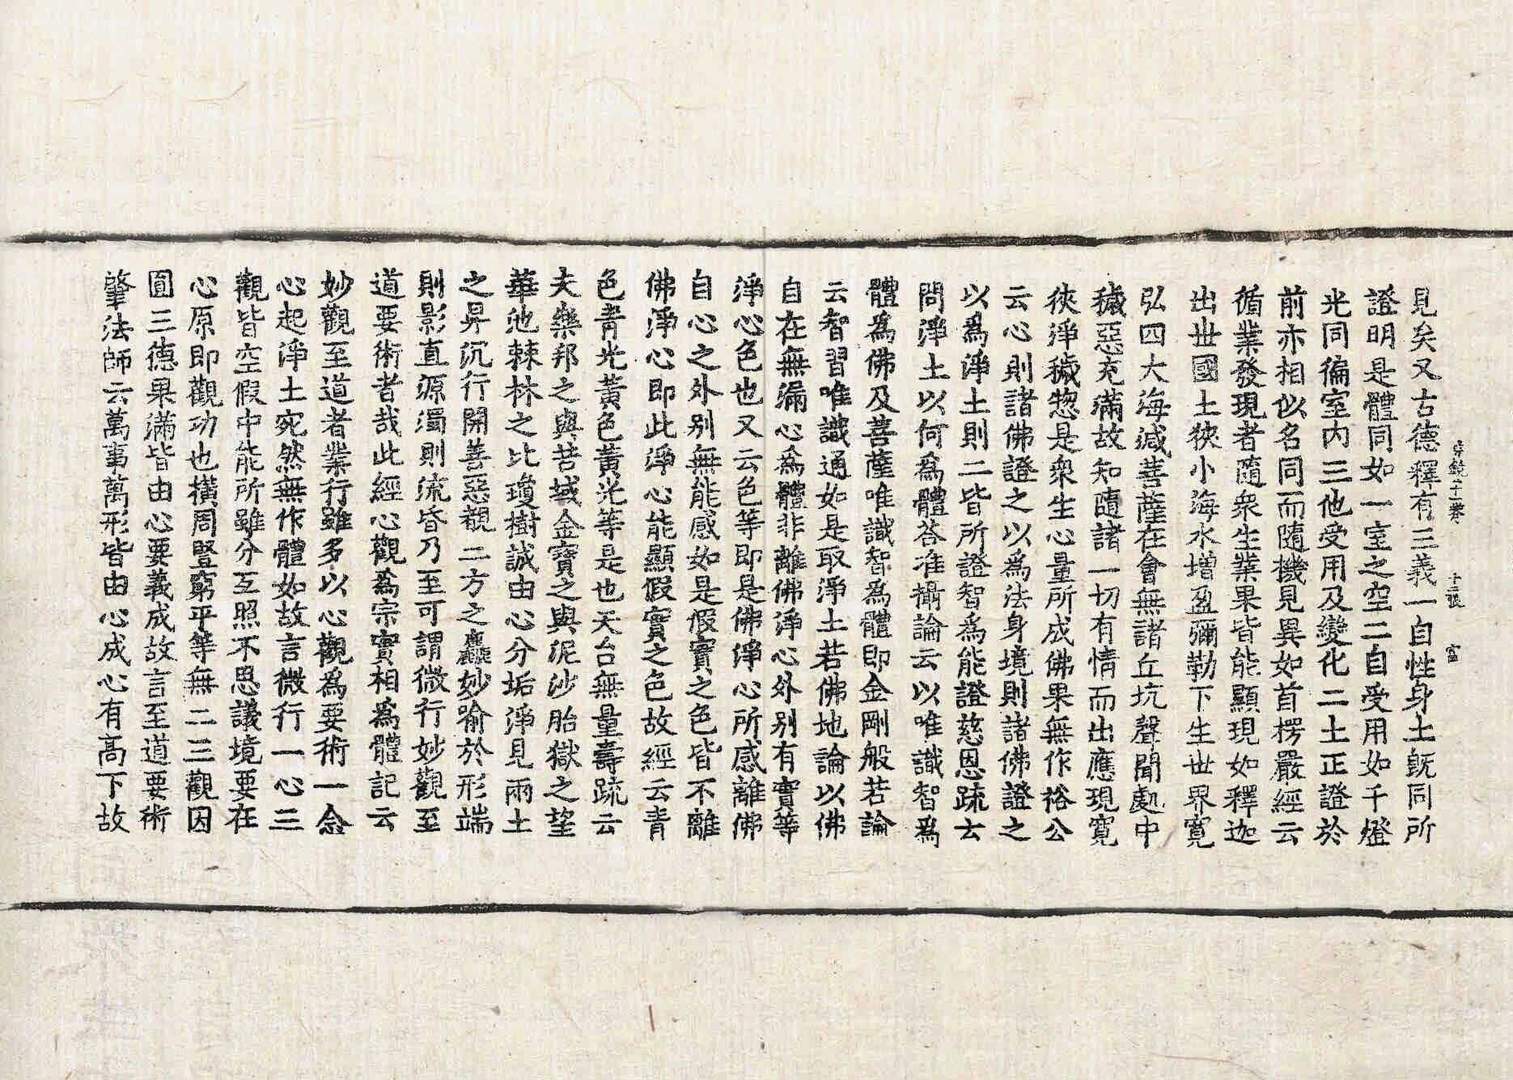 宗鏡二十一卷　十三張　富
見矣又古德釋有三義一自性身土旣同所
證明是體同如一室之空二自受用如千燈
光同徧室內三他受用及變化二土正證於
前亦相似名同而隨機見異如首楞嚴經云
循業發現者隨衆生業果皆能顯現如釋迦
出世國土狹小海水增盈彌勒下生世界寬
弘四大海減菩薩在會無諸丘坑聲聞處中
穢惡充滿故知隨諸一切有情而出應現寬
狹淨穢惣是衆生心量所成佛果無作裕公
云心則諸佛證之以爲法身境則諸佛證之
以爲淨土則二皆所證智爲能證慈恩疏云
問淨土以何爲體答准攝論云以唯識智爲
體爲佛及菩薩唯識智爲體即金剛般若論
云智習唯識通如是取淨土若佛地論以佛
自在無漏心爲體非離佛淨心外別有實等
淨心色也又云色等即是佛淨心所感離佛
自心之外別無能感如是假實之色皆不離
佛淨心即此淨心能顯假實之色故經云青
色青光黃色黃光等是也天台無量壽疏云
夫樂邦之與苦域金寶之與泥沙胎獄之望
華池棘林之比瓊樹誠由心分垢淨見兩土
之昇沉行開善惡覩二方之麤妙喻於形端
則影直源濁則流昏乃至可謂微行妙觀至
道要術者哉此經心觀爲宗實相爲體記云
妙觀至道者業行雖多以心觀爲要術一念
心起淨土宛然無作體如故言微行一心三
觀皆空假中能所雖分互照不思議境要在
心原即觀功也橫周豎窮平等無二三觀因
圓三德果滿皆由心要義成故言至道要術
肇法師云萬事萬形皆由心成心有高下故